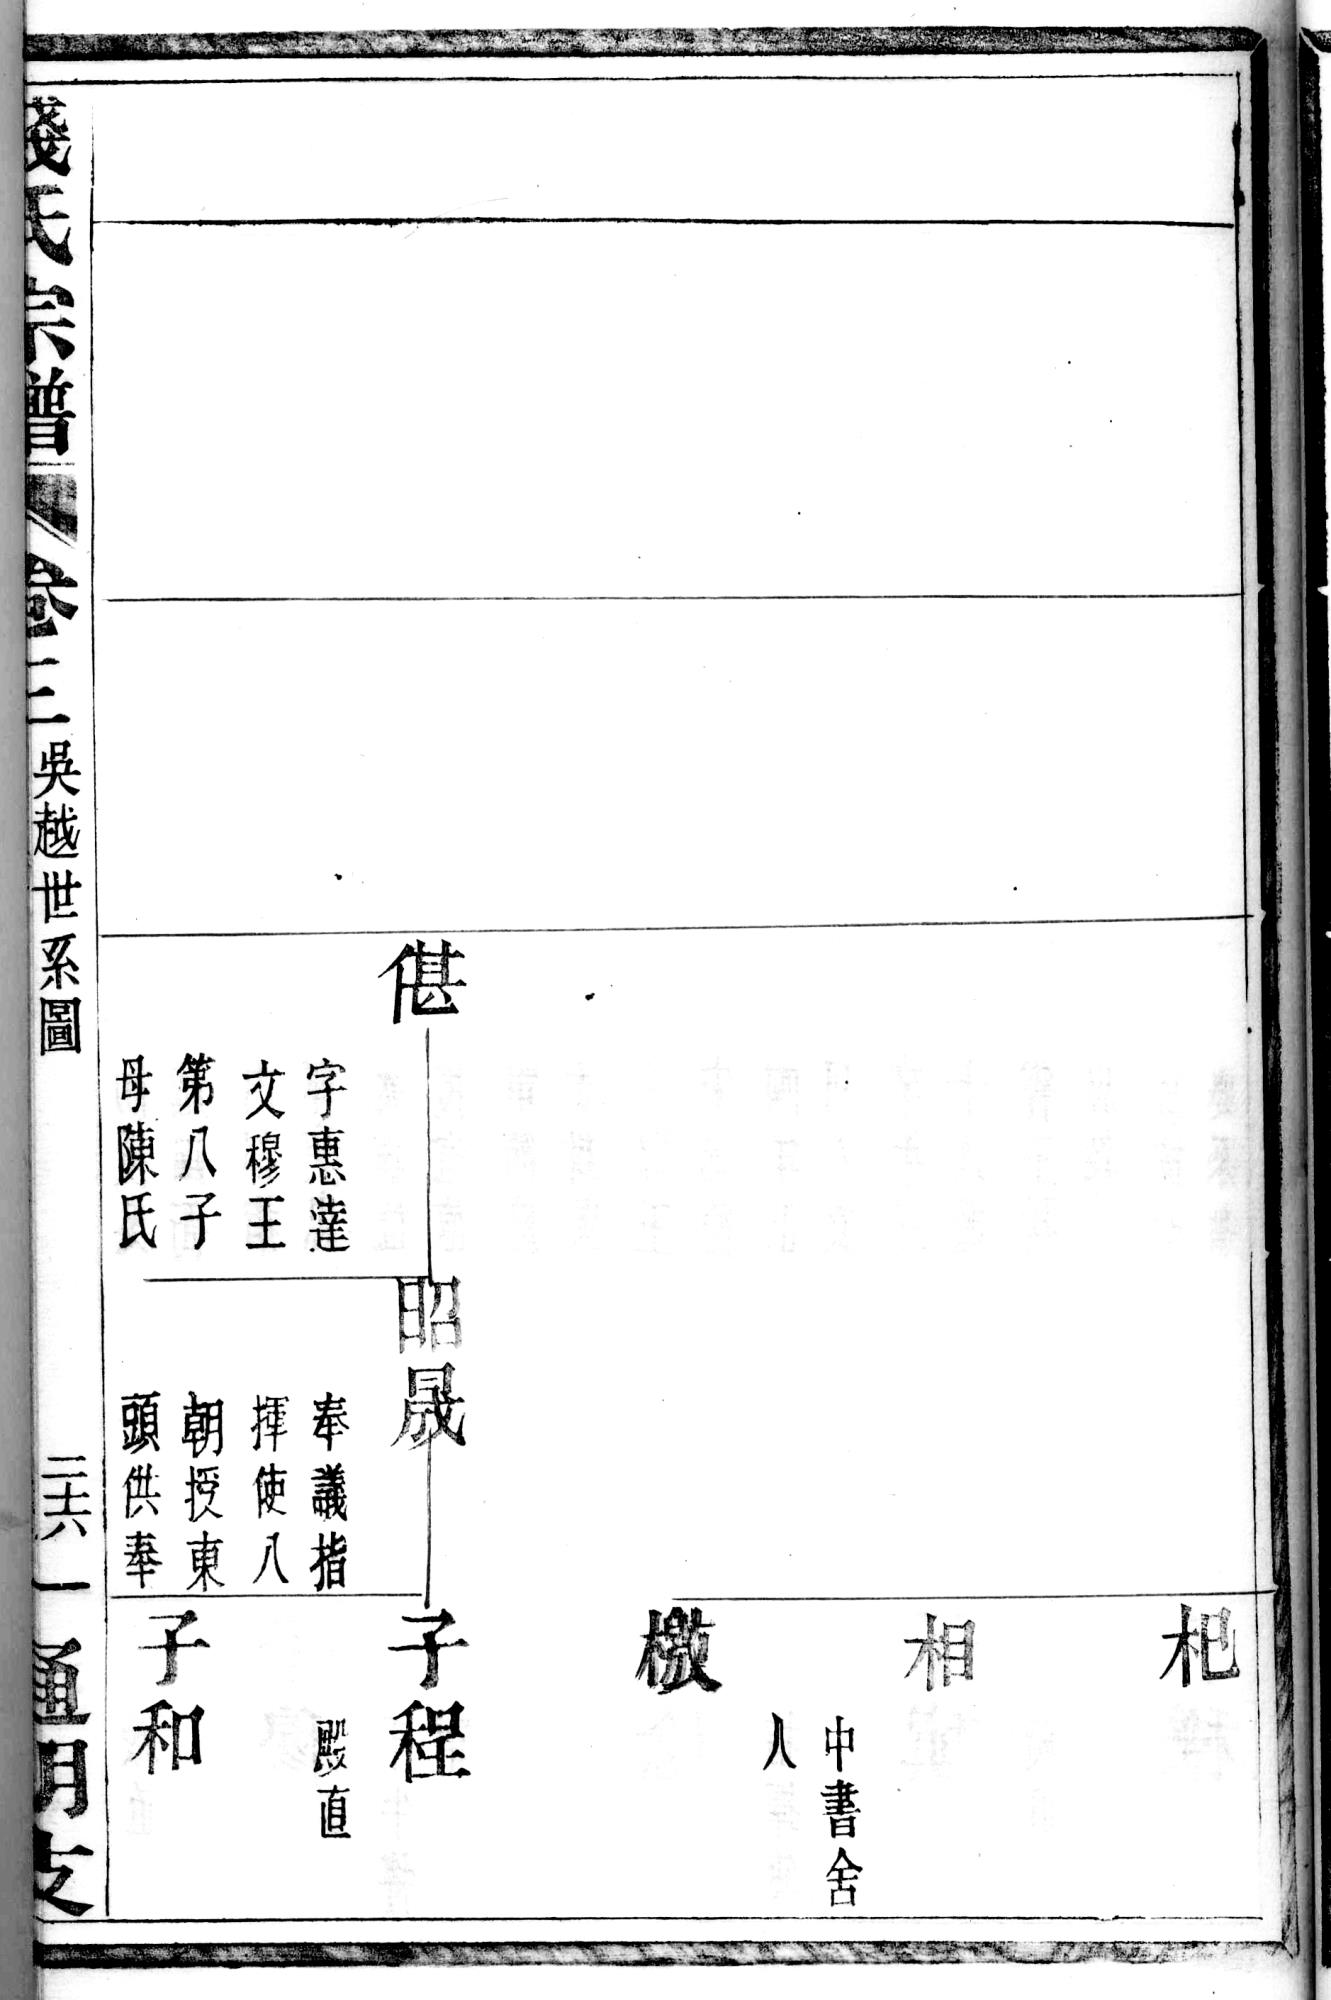 偡
字惠達
文穆王
第八子
母陳氏
昭晟
奉議指
揮使入
朝授東
頭供奉
杞
相
中書舍
人
檄
子程
殿直
子和
錢氏宗譜
卷三
吳越世系圖
二十六
通明支